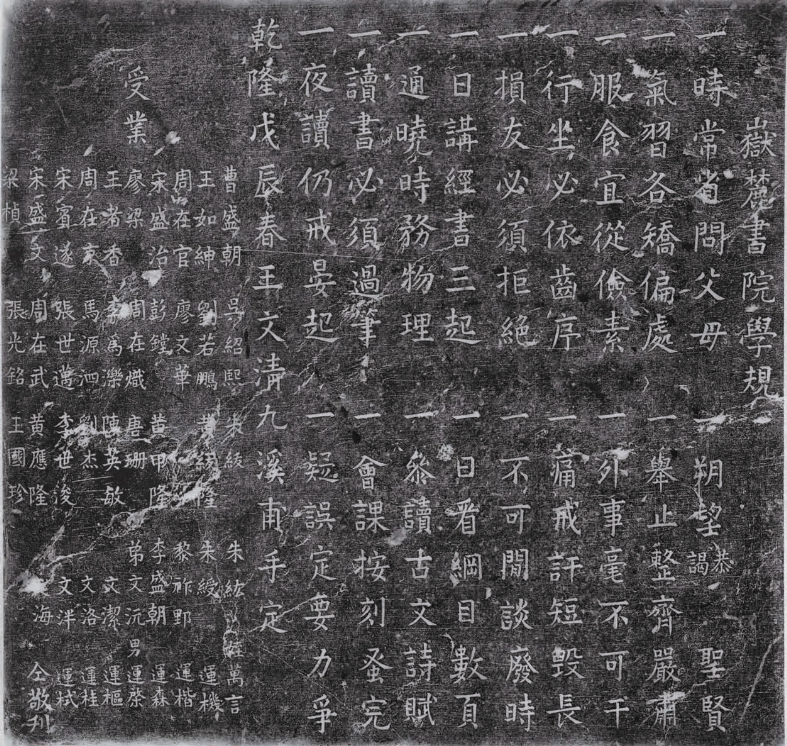 嶽麓書院學規
一時常省問父母　一朔望恭謁聖賢
一氣習各矯偏處　一舉止整齊嚴肅
一服食宜從儉素　一外事毫不可干
一行坐必依齒序　一痛戒訐短毀長
一損友必須拒絕　一不可閒談廢時
一日講經書三起　一日看綱目數頁
一通曉時務物理　一叅讀古文詩賦
一讀書必須過筆　一會課按刻蚤完
一夜讀仍戒晏起　一疑誤定要力爭
乾隆戊辰春王文清九溪甫手定
受業
曹盛朝　吳紹熙　朱紱　朱紘　姪萬言
王如紳　劉若鵬　隆　朱綬　運機
周在官　廖文華　黎祚野　運楷
宋盛治　彭鏜　黃甲隆　李盛朝　運森
廖梁　周在熾　唐珊　弟文沅　男運榮
王耆香　李為濼　陳英敏　文潔　運樞
周在京　馬源泗　劉杰　文洛　運桂
宋賓遂　張世邁　李世浚　文泮　運栻
宋盛文　周在武　黃應隆　海　仝敬刊
梁楨　張光銘　王國珍